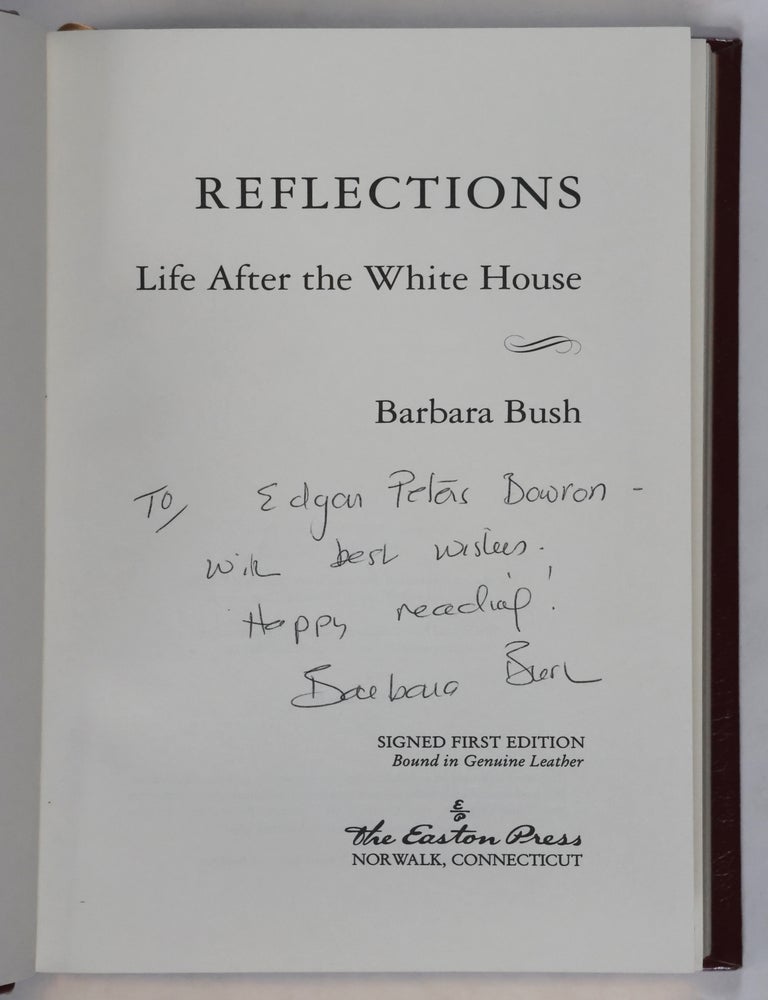 REFLECTIONS
Life After the White House
Barbara Bush
To Edgar Peters Bowron -
with best wishes.
Happy reading!
Barbara Bush
SIGNED FIRST EDITION
Bound in Genuine Leather
EP
The Easton Press
NORWALK, CONNECTICUT